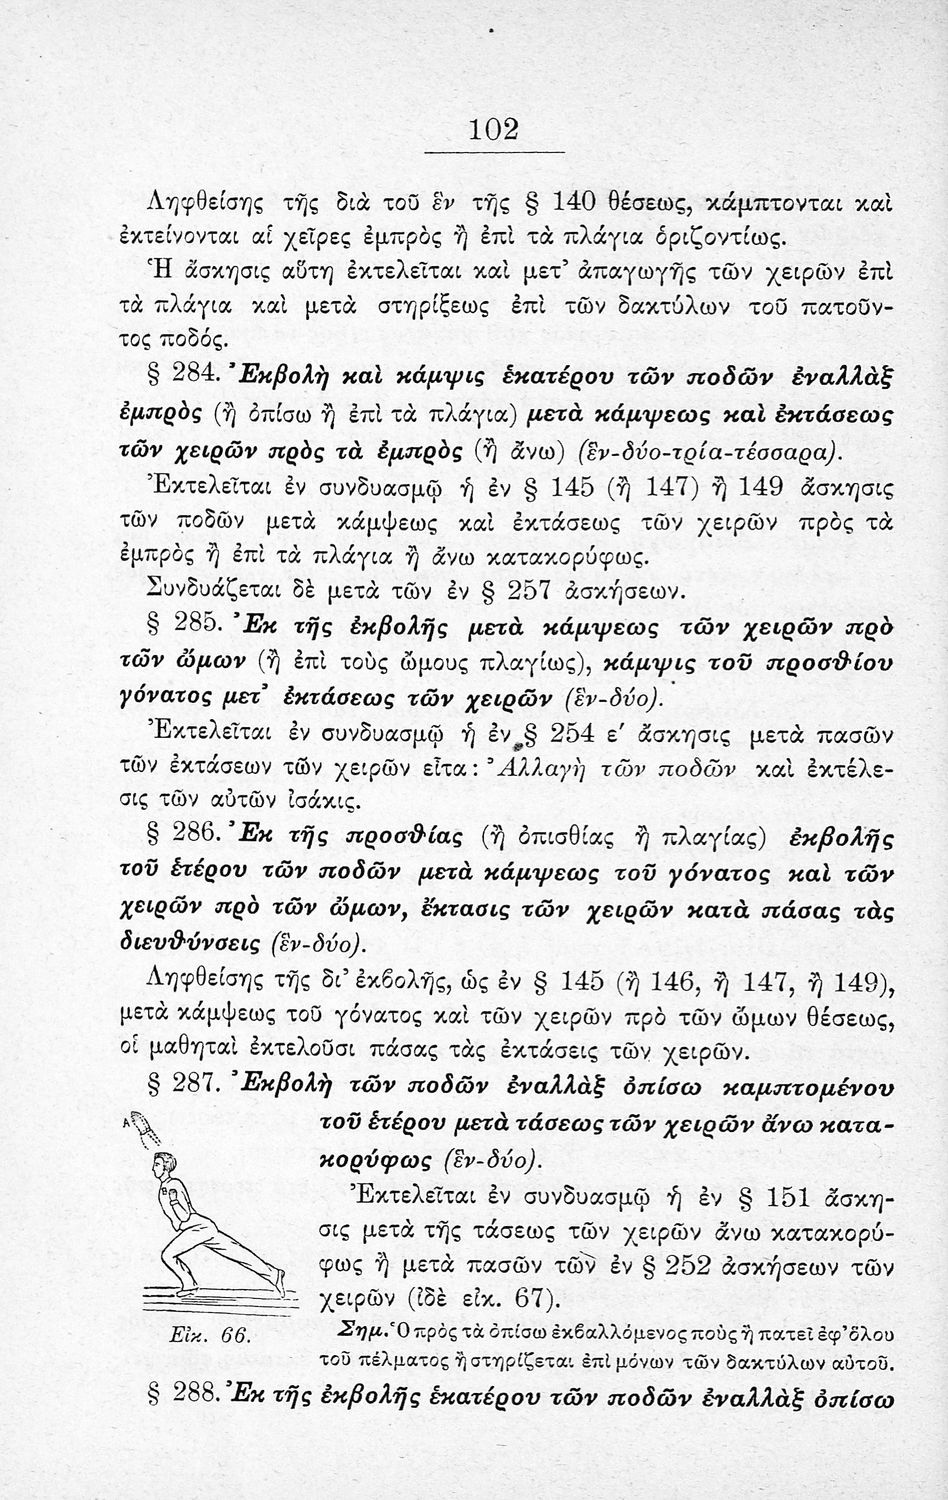 102
Ληφθείσης τῆς διὰ τοῦ ἓν τῆς § 140 θέσεως, κάμπτονται καὶ
ἐκτείνονται αἱ χεῖρες ἐμπρὸς ἢ ἐπὶ τὰ πλάγια ὁριζοντίως.
Ἡ ἄσκησις αὕτη ἐκτελεῖται καὶ μετ’ ἀπαγωγῆς τῶν χειρῶν ἐπὶ
τὰ πλάγια καὶ μετὰ στηρίξεως ἐπὶ τῶν δακτύλων τοῦ πατοῦν-
τος ποδός.
§ 284. Ἐκβολὴ καὶ κάμψις ἑκατέρου τῶν ποδῶν ἐναλλὰξ
ἐμπρὸς (ἢ ὀπίσω ἢ ἐπὶ τὰ πλάγια) μετὰ κάμψεως καὶ ἐκτάσεως
τῶν χειρῶν πρὸς τὰ ἐμπρὸς (ἢ ἄνω) (ἓν-δύο-τρία-τέσσαρα).
Ἐκτελεῖται ἐν συνδυασμῷ ἡ ἐν § 145 (ἢ 147) ἢ 149 ἄσκησις
τῶν ποδῶν μετὰ κάμψεως καὶ ἐκτάσεως τῶν χειρῶν πρὸς τὰ
ἐμπρὸς ἢ ἐπὶ τὰ πλάγια ἢ ἄνω κατακορύφως.
Συνδυάζεται δὲ μετὰ τῶν ἐν § 257 ἀσκήσεων.
§ 285. Ἐκ τῆς ἐκβολῆς μετὰ κάμψεως τῶν χειρῶν πρὸ
τῶν ὤμων (ἢ ἐπὶ τοὺς ὤμους πλαγίως), κάμψις τοῦ προσθίου
γόνατος μετ’ ἐκτάσεως τῶν χειρῶν (ἓν-δύο).
Ἐκτελεῖται ἐν συνδυασμῷ ἡ ἐν § 254 ε′ ἄσκησις μετὰ πασῶν
τῶν ἐκτάσεων τῶν χειρῶν εἶτα: Ἀλλαγὴ τῶν ποδῶν καὶ ἐκτέλε-
σις τῶν αὐτῶν ἰσάκις.
§ 286. Ἐκ τῆς προσθίας (ἢ ὀπισθίας ἢ πλαγίας) ἐκβολῆς
τοῦ ἑτέρου τῶν ποδῶν μετὰ κάμψεως τοῦ γόνατος καὶ τῶν
χειρῶν πρὸ τῶν ὤμων, ἔκτασις τῶν χειρῶν κατὰ πάσας τὰς
διευθύνσεις (ἓν-δύο).
Ληφθείσης τῆς δι’ ἐκβολῆς, ὡς ἐν § 145 (ἢ 146, ἢ 147, ἢ 149),
μετὰ κάμψεως τοῦ γόνατος καὶ τῶν χειρῶν πρὸ τῶν ὤμων θέσεως,
οἱ μαθηταὶ ἐκτελοῦσι πάσας τὰς ἐκτάσεις τῶν χειρῶν.
§ 287. Ἐκβολὴ τῶν ποδῶν ἐναλλὰξ ὀπίσω καμπτομένου
τοῦ ἑτέρου μετὰ τάσεως τῶν χειρῶν ἄνω κατα-
κορύφως (ἓν-δύο).
Ἐκτελεῖται ἐν συνδυασμῷ ἡ ἐν § 151 ἄσκη-
σις μετὰ τῆς τάσεως τῶν χειρῶν ἄνω κατακορύ-
φως ἢ μετὰ πασῶν τῶν ἐν § 252 ἀσκήσεων τῶν
χειρῶν (ἰδὲ εἰκ. 67).
A
Εἰκ. 66.
Σημ. Ὁ πρὸς τὰ ὀπίσω ἐκβαλλόμενος ποὺς ἢ πατεῖ ἐφ’ ὅλου
τοῦ πέλματος ἢ στηρίζεται ἐπὶ μόνων τῶν δακτύλων αὐτοῦ.
§ 288. Ἐκ τῆς ἐκβολῆς ἑκατέρου τῶν ποδῶν ἐναλλὰξ ὀπίσω